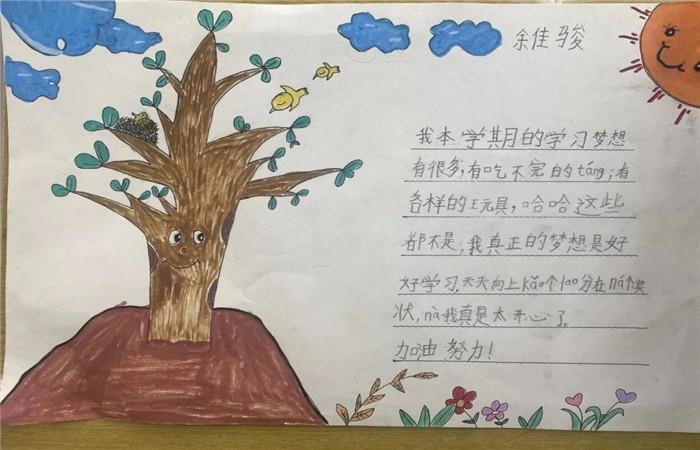 余佳骏
我本学其月的学习梦想
有很多,有吃不完的táng;有
各样的玩具,哈哈这些
都不是,我真正的梦想是好
好学习,天天向上kǎo个100分在ná个奖
状,nà我真是太开心了。
加油努力!